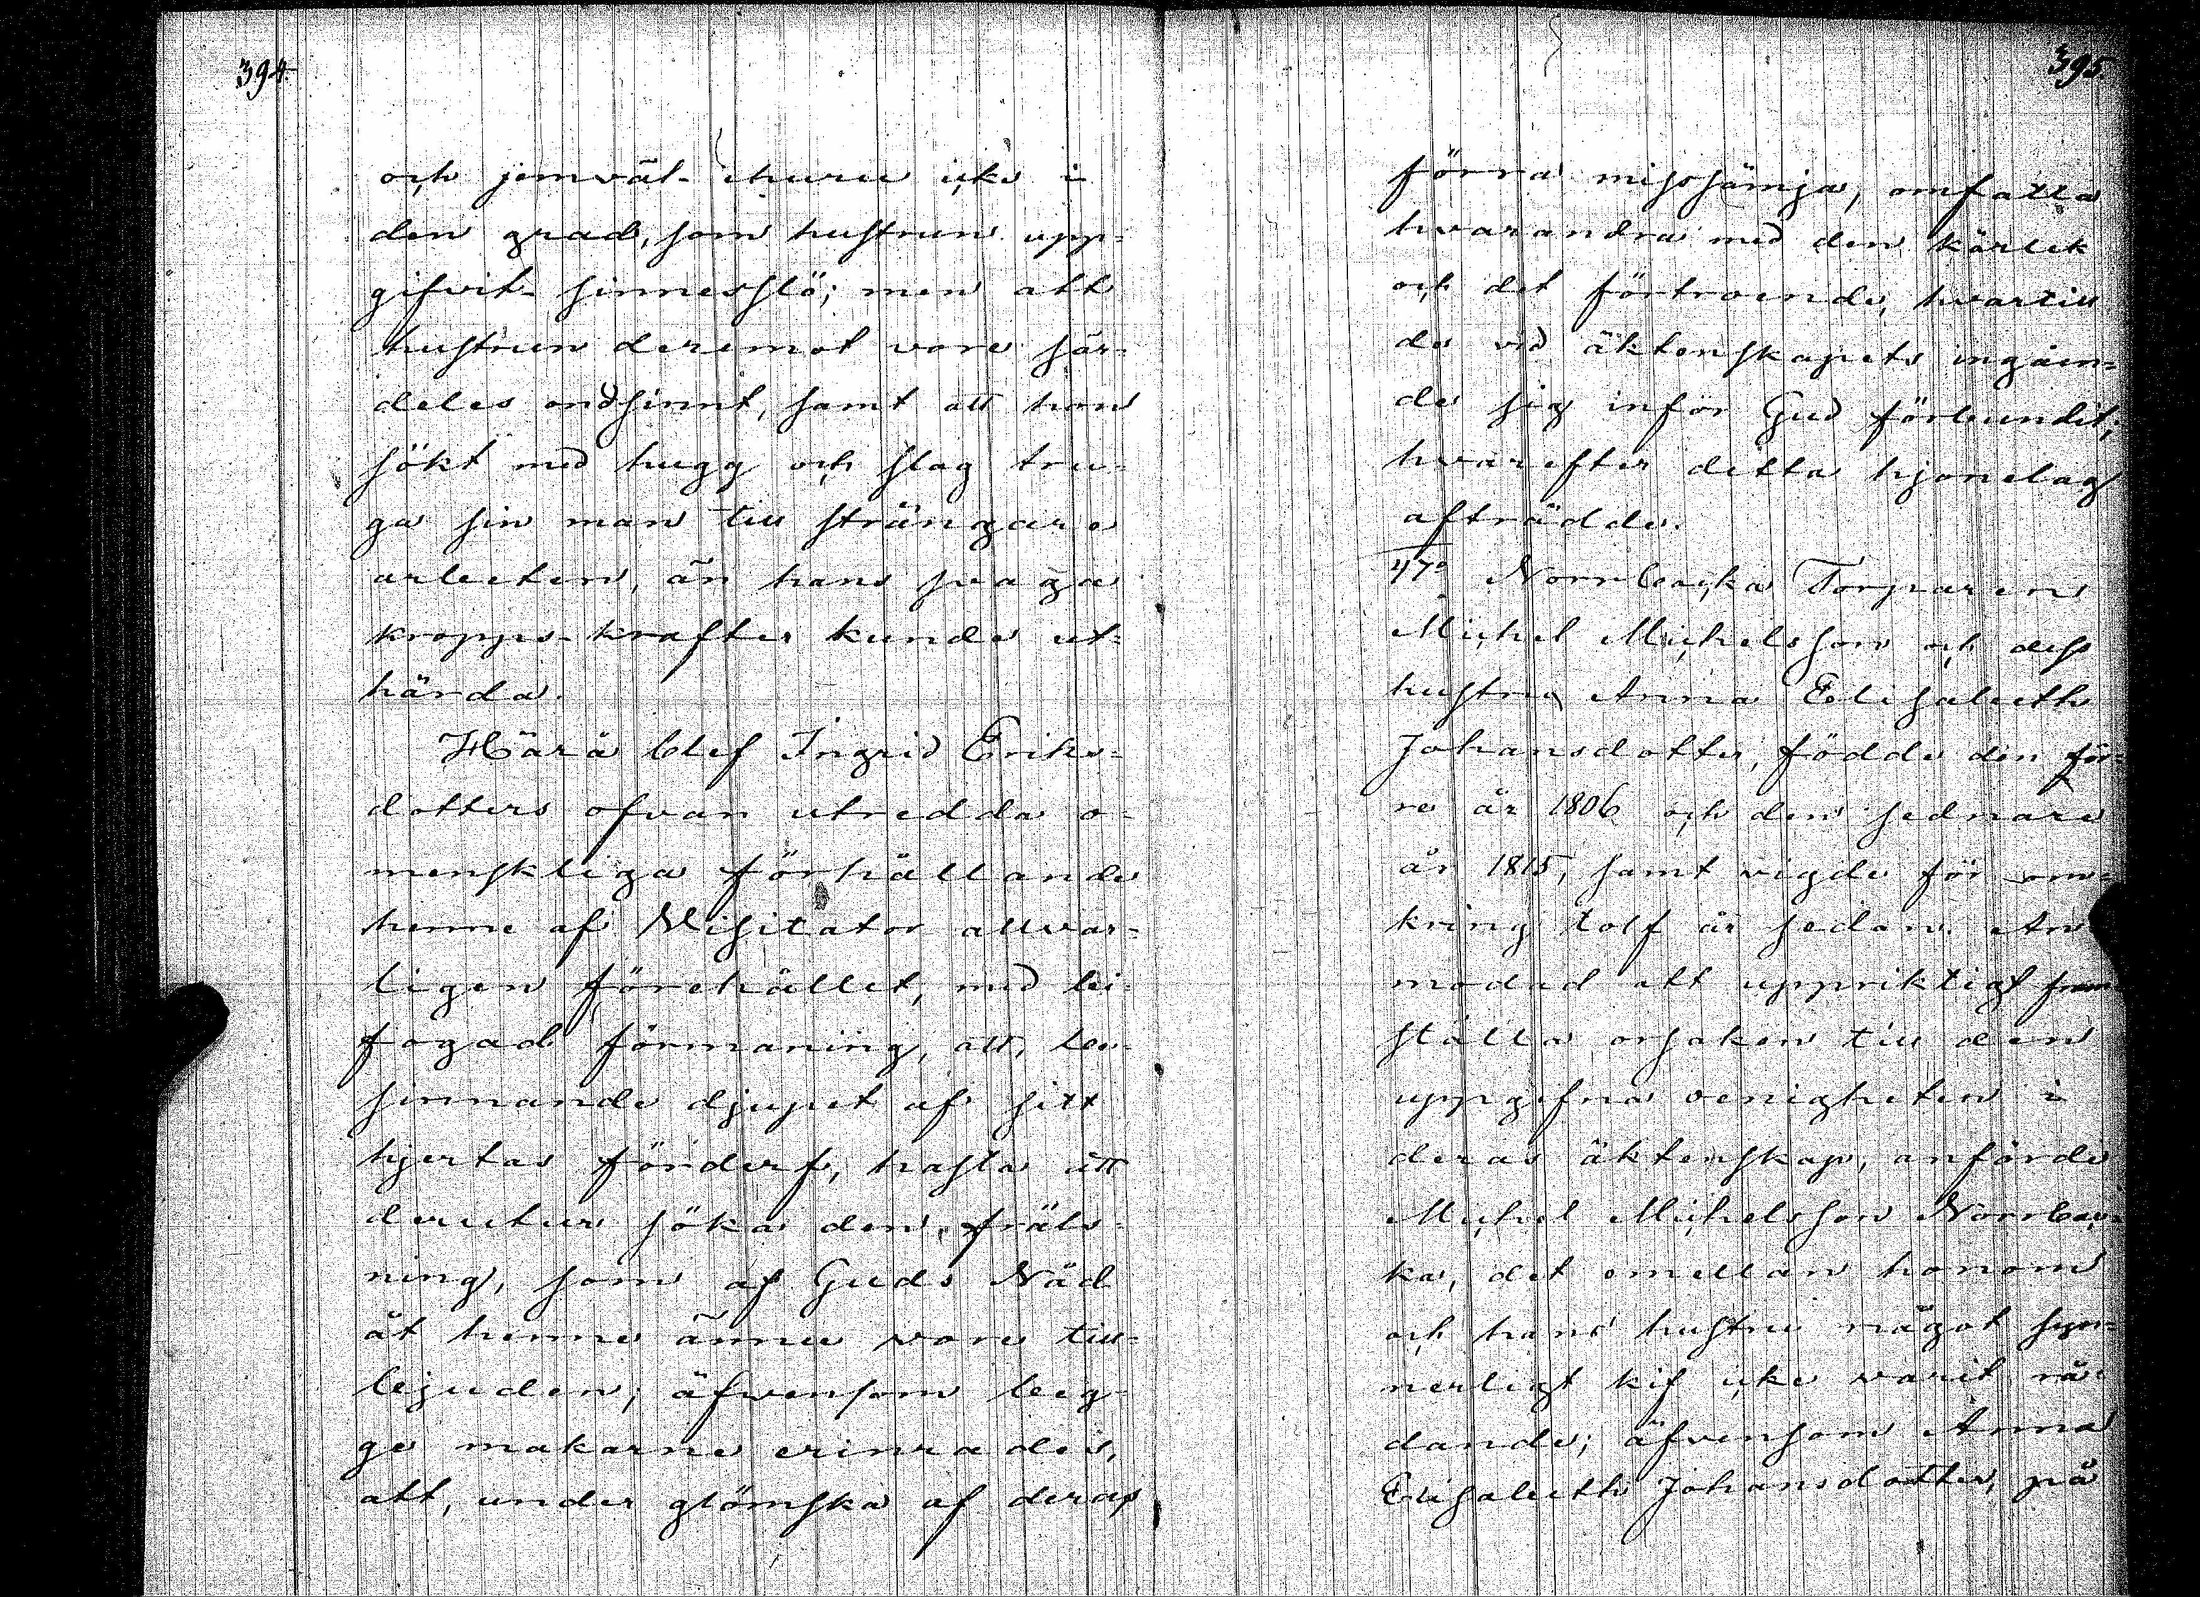 394.
och jemväl ehuru icke i
den grad, som hustrun upp=
gifvit sinnesslö; men att
hustrun deremot vore sär=
deles ondsinnt, samt att hon
sökt med hugg och slag tru=
ga sin man till strängare
arbeten, än hans svaga
kropps-krafter kunde ut=
härda.
Härå blef Ingrid Eriks=
dotters ofvan utredda o=
menskliga förhållande
henne af Visitator allvar=
ligen förehållet, med bi=
fogad förmaning, att, be=
sinnande djupet af sitt
hjertas förderf, hasta att
derutur söka den fräls=
ning, som af Guds Nåd
åt henne ännu vore till=
bjuden; äfvensom beg=
ge makarne erinrades,
att, under glömska af deras
395
förra missämja, omfatta
hvarandra med den kärlek
och det förtroende, hvartill
de vid äktenskapets ingåen=
de sig inför Gud förbundit;
hvarefter detta hjonelag
afträdde.
47o Norrbacka Torparen
Michel Michelsson och dess
hustru Anna Elisabeth
Johansdotter, födde den för=
re år 1806 och den sednare
år 1815, samt vigde för om=
kring tolf år sedan. An
modad att uppriktigt fram
ställa orsaken till den
uppgifna oenigheten i
deras äktenskap, anförde
Michel Michelsson Norrbac=
ka, det emellan honom
och hans hustru något syn=
nerligt kif icke varit rå=
dande; äfvensom Anna
Elisabeth Johansdotter, på